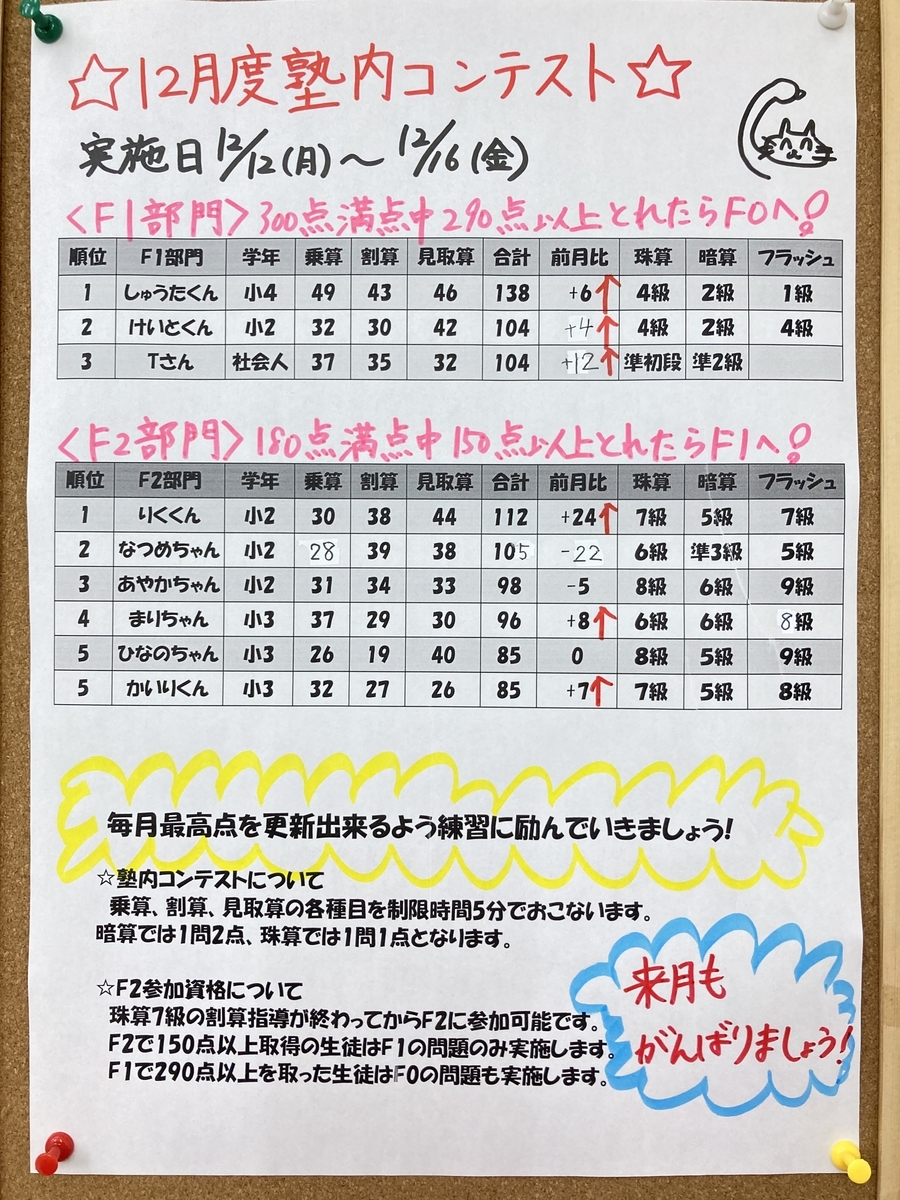 ☆12月度塾内コンテスト☆
実施日12/12(月)～12/16(金)
〈F1部門〉300点満点中290点以上とれたらF0へ!
順位 F1部門 学年 乗算 割算 見取算 合計 前月比 珠算 暗算 フラッシュ
1 しゅうたくん 小4 49 43 46 138 +6↑ 4級 2級 1級
2 けいとくん 小2 32 30 42 104 +4↑ 4級 2級 4級
3 Tさん 社会人 37 35 32 104 +12↑ 準初段 準2級
〈F2部門〉180点満点中150点以上とれたらF1へ!
順位 F2部門 学年 乗算 割算 見取算 合計 前月比 珠算 暗算 フラッシュ
1 りくくん 小2 30 38 44 112 +24↑ 7級 5級 7級
2 なつめちゃん 小2 28 39 38 105 -22 6級 準3級 5級
3 あやかちゃん 小2 31 34 33 98 -5 8級 6級 9級
4 まりちゃん 小3 37 29 30 96 +8↑ 6級 6級 8級
5 ひなのちゃん 小3 26 19 40 85 0 8級 5級 9級
5 かいりくん 小3 32 27 26 85 +7↑ 7級 5級 8級
毎月最高点を更新出来るよう練習に励んでいきましょう!
☆塾内コンテストについて
乗算、割算、見取算の各種目を制限時間5分でおこないます。
暗算では1問2点、珠算では1問1点となります。
☆F2参加資格について
珠算7級の割算指導が終わってからF2に参加可能です。
F2で150点以上取得の生徒はF1の問題のみ実施します。
F1で290点以上を取った生徒はF0の問題も実施します。
来月も
がんばりましょう!